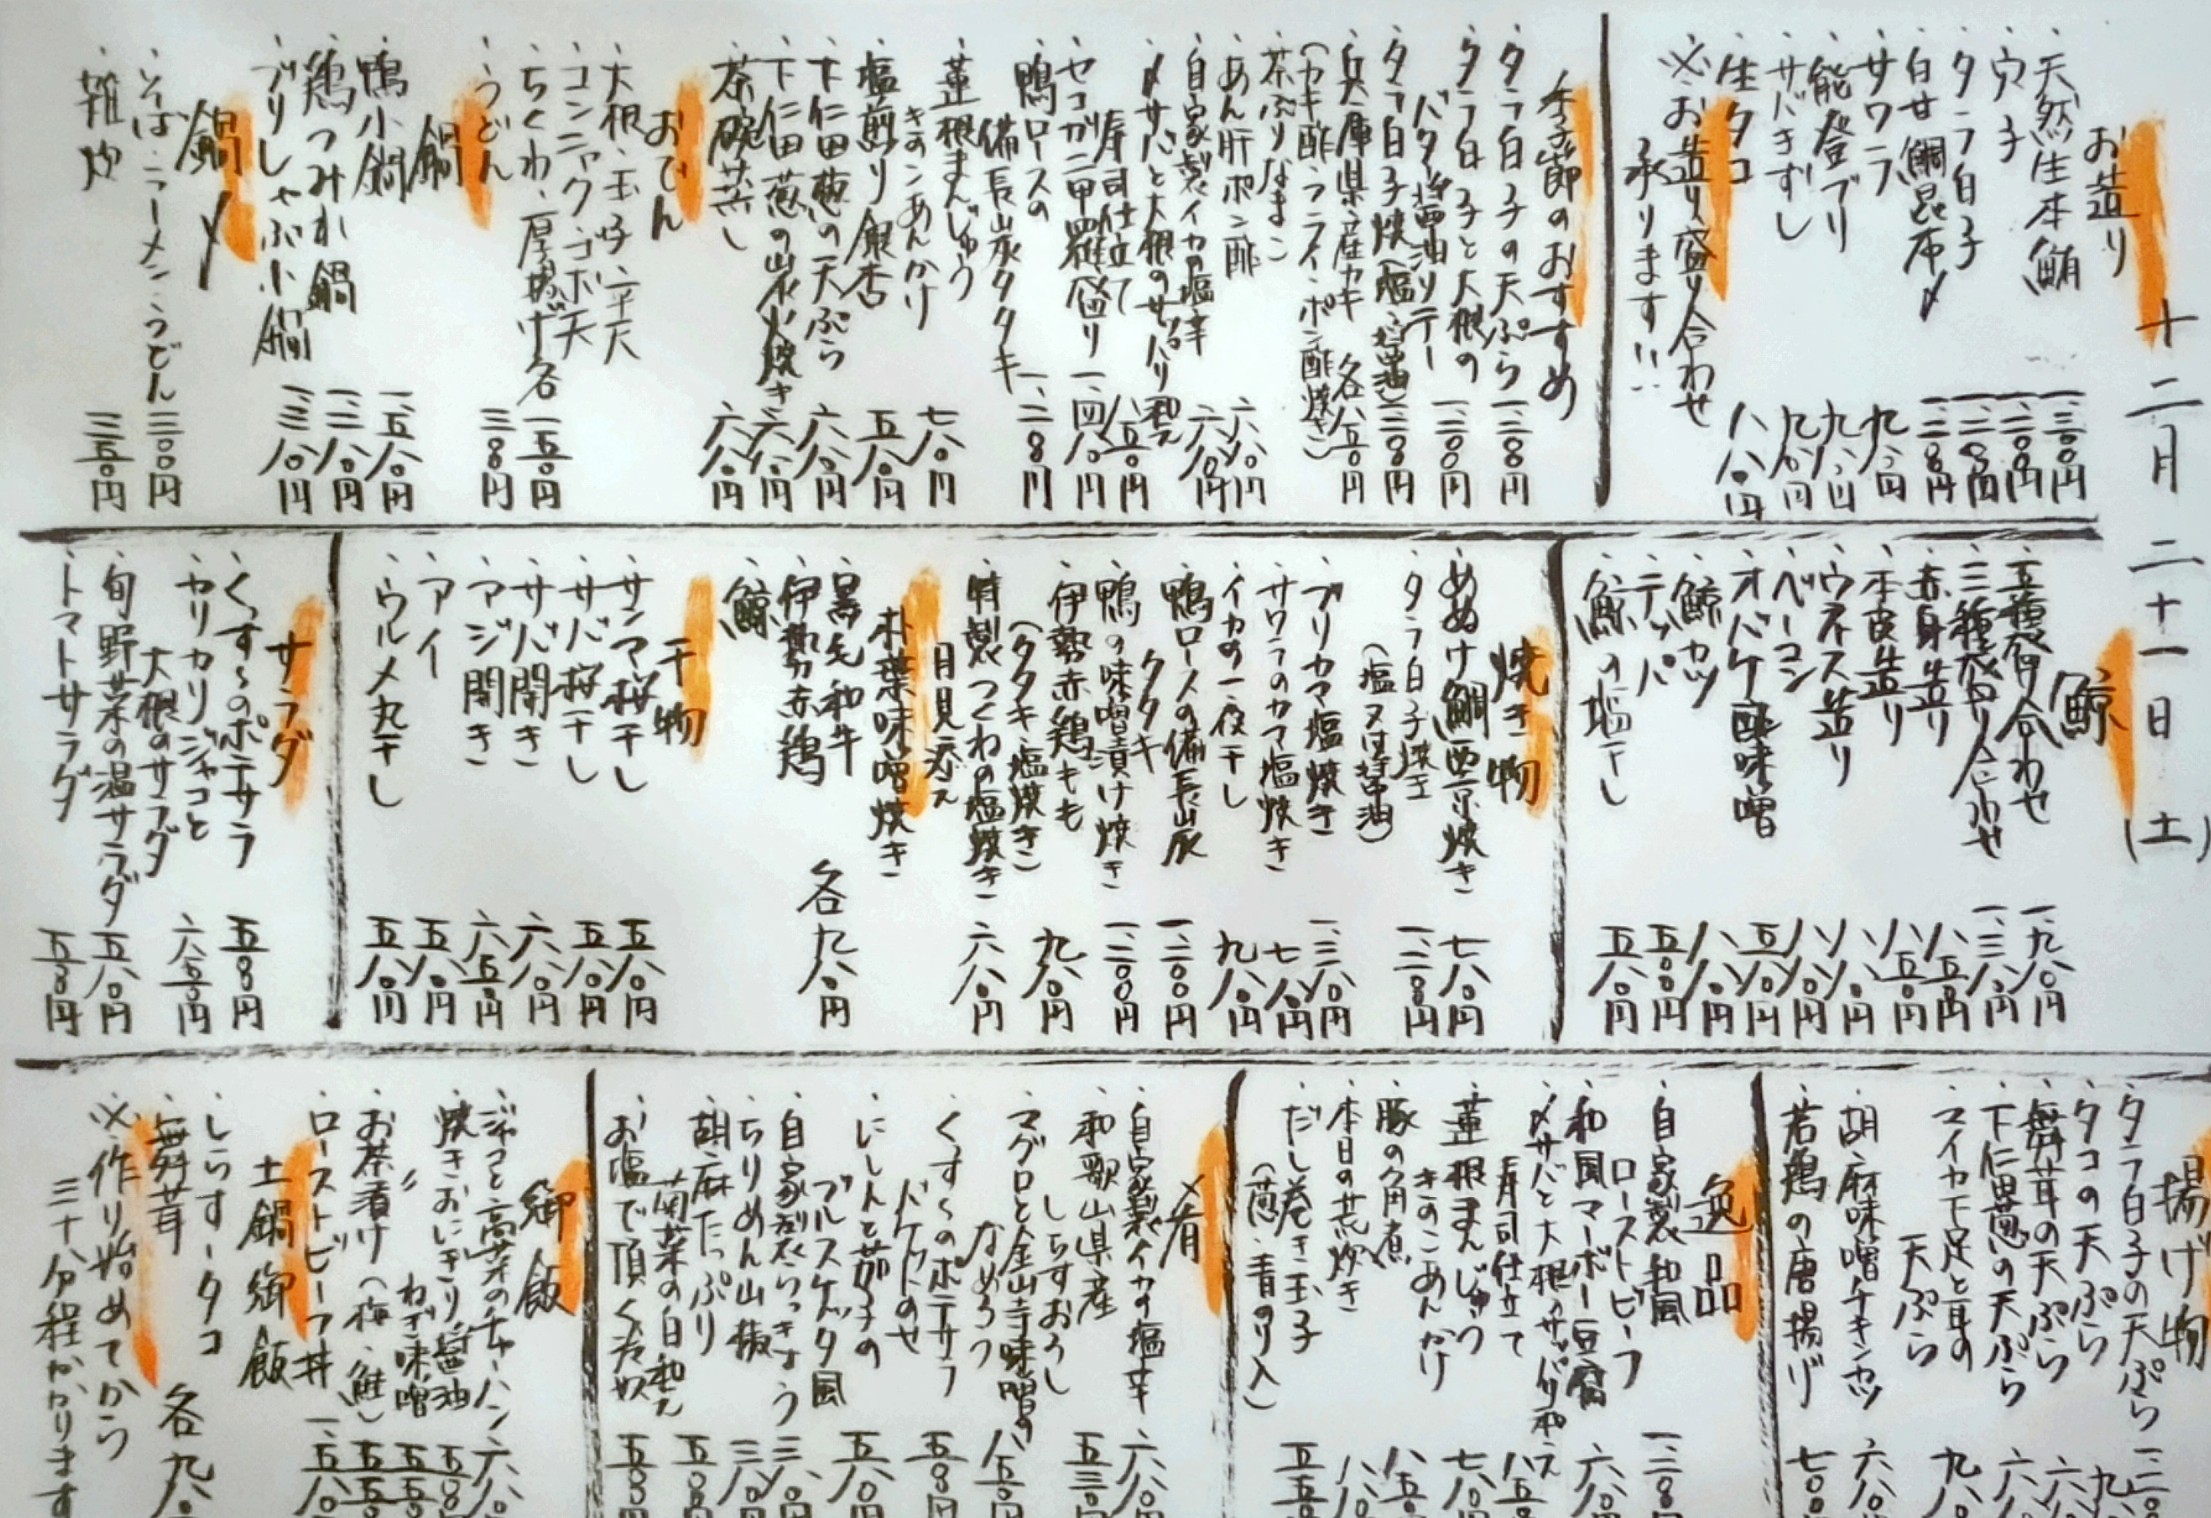 十二月二十一日(土)
お造り
・天然生本鮪 一、三〇〇円
・穴子 一、二〇〇円
・タラ白子 一、二〇〇円
・白甘鯛昆布〆 一、二〇〇円
・サワラ 九八〇円
・能登ブリ 九八〇円
・サバきずし 九八〇円
・生タコ 八八〇円
※お造り盛り合わせ
承ります!!
季節のおすすめ
・タラ白子の天ぷら 一、二〇〇円
・タラ白子と大根の
バター醤油ソテー 一、二〇〇円
・タラ白子焼(塩・醤油) 一、二〇〇円
・兵庫県産カキ 各八五〇円
(カキ酢・フライ・ポン酢焼き)
・茶ぶりなまこ
・あん肝ポン酢 六八〇円
・自家製イカの塩辛 六八〇円
・〆サバと大根のサッパリ和え
寿司仕立て 八五〇円
・セコガニ甲羅盛り 一、四八〇円
・鴨ロースの
備長山炭タタキ 一、二〇〇円
・蓮根まんじゅう
きのこあんかけ 七八〇円
・塩煎り銀杏 五八〇円
・下仁田葱の天ぷら 六八〇円
・下仁田葱の炭火焼き 六八〇円
・茶碗蒸し 六八〇円
おでん
・大根・玉子・平天
・コンニャク・ゴボ天
・ちくわ・厚揚げ各 一五〇円
・うどん 三〇〇円
鍋
・鴨小鍋 一、五八〇円
・鶏つみれ鍋 一、二八〇円
・ブリしゃぶ小鍋 一、三八〇円
鍋〆
・そば・ラーメン・うどん 三〇〇円
・雑炊 三五〇円
鯨
・五種盛り合わせ 一、九八〇円
・三種盛り合わせ 一、三八〇円
・赤身造り 八五〇円
・本皮造り 八五〇円
・ウネス造り 八八〇円
・ベーコン 八八〇円
・オバケ酢味噌 五八〇円
・鯨カツ 八八〇円
・テッパ 五八〇円
・鯨の塩干し 五八〇円
焼き物
・めぬけ鯛西京焼き 七八〇円
・タラ白子焼
(塩又は醤油) 一、二〇〇円
・ブリカマ塩焼き 一、三八〇円
・サワラのカマ塩焼き 七八〇円
・イカの一夜干し 九八〇円
・鴨ロースの備長山炭
タタキ 一、二〇〇円
・鴨の味噌漬け焼き 一、二〇〇円
・伊勢赤鶏もも
(タタキ・塩焼き) 九八〇円
・特製つくねの塩焼き
月見添え 六八〇円
朴葉味噌焼き
・黒毛和牛
・伊勢赤鶏 各九八〇円
・鯨
干物
・サンマ桜干し 五八〇円
・サバ桜干し 五八〇円
・サバ開き 六八〇円
・アジ開き 六五〇円
・アイ 五八〇円
・ウルメ丸干し 五八〇円
サラダ
・くずしのポテサラ 五〇〇円
・カリカリジャコと
大根のサラダ 六五〇円
・旬野菜の温サラダ 五八〇円
・トマトサラダ 五〇〇円
揚げ物
・タラ白子の天ぷら 一、二〇
・タコの天ぷら 九八
・舞茸の天ぷら 六八
・下仁田葱の天ぷら 六八〇
・マイカ下足と耳の
天ぷら 九八〇
・胡麻味噌チキンカツ 六八〇
・若鶏の唐揚げ 七〇〇
逸品
・自家製和風
ローストビーフ 一、二〇〇
・和風マーボー豆腐 六八〇
・〆サバと大根のサッパリ和え
寿司仕立て 八五〇
・蓮根まんじゅう
きのこあんかけ 七八〇円
・豚の角煮 八五〇
・本日の荒炊き 八八〇
・だし巻き玉子 五五〇
(葱・青のり入)
〆肴
・自家製イカの塩辛 六八〇
・和歌山県産
しらすおろし 五三〇円
・マグロと金山寺味噌の
なめろう 八五〇円
・くずしのポテサラ
バケットのせ 五〇〇円
・にしんと茄子の
ブルスケッタ風 五八〇円
・自家製らっきょう 三八〇円
・ちりめん山椒 三八〇円
・胡麻たっぷり
菊菜の白和え 五〇〇円
・お塩で頂く冷奴 五〇〇円
御飯
・ジャコと高菜のチャーハン 六八〇
・焼きおにぎり醤油 五〇〇
・〃 ねぎ味噌 五五〇
・お茶漬け(梅・鮭) 五五〇
・ローストビーフ丼 一、五八〇
土鍋御飯
・しらす・タコ
・舞茸 各九八〇
※作り始めてから
三十分程かかります